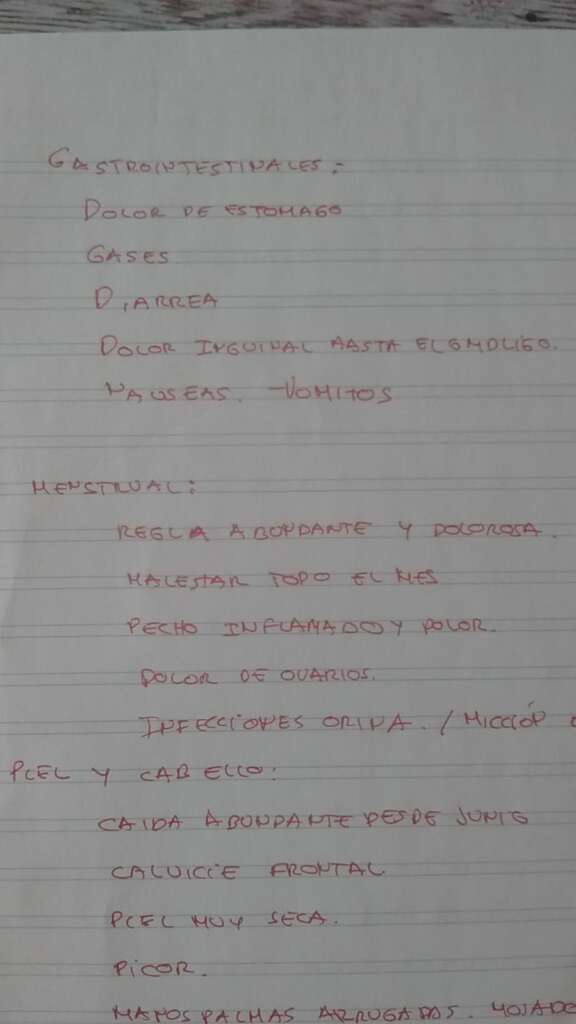 GASTROINTESTINALES:
DOLOR DE ESTOMAGO
GASES
DIARREA
DOLOR INGUINAL HASTA EL OMBLIGO.
NAUSEAS. -VOMITOS
MENSTRUAL:
REGLA ABONDANTE Y DOLOROSA.
MALESTAR TODO EL MES
PECHO INFLAMADO Y DOLOR.
DOLOR DE OVARIOS.
INFECCIONES ORINA. / MICCIÓN
PIEL Y CABELLO:
CAIDA ABUNDANTE DESDE JUNIO
CALVICIE FRONTAL
PIEL MUY SECA.
PICOR.
MANOS PALMAS ARRUGADAS.